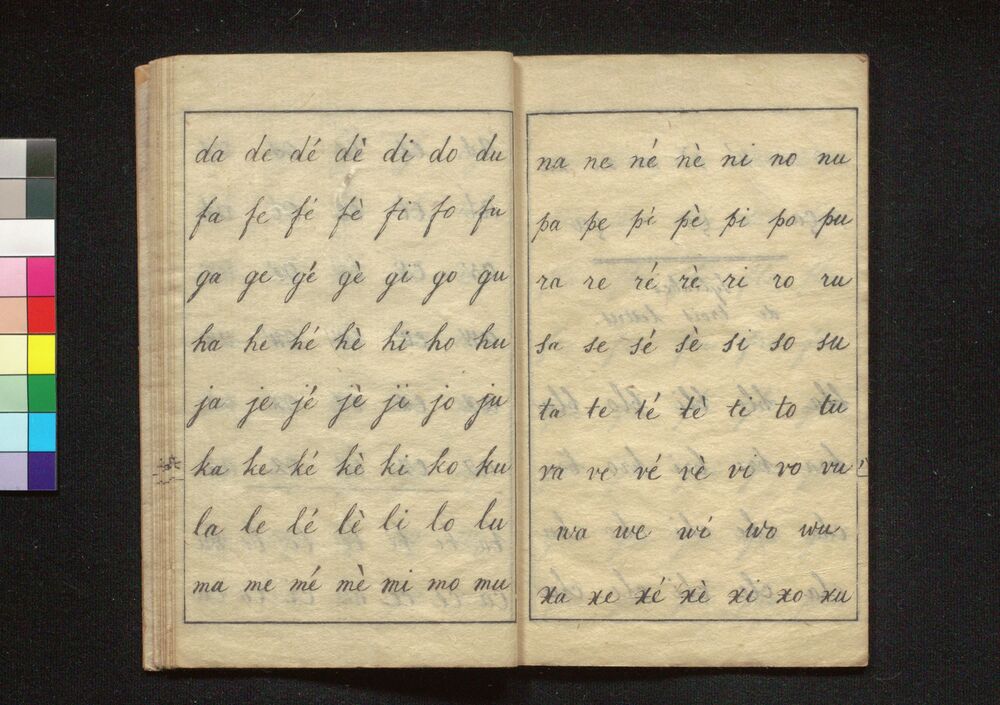 da de dé dè di do du
fa fe fé fè fi fo fu
ga ge gé gè gi go gu
ha he hé hè hi ho hu
ja je jé jè ji jo ju
ka ke ké kè ki ko ku
la le lé lè li lo lu
ma me mé mè mi mo mu
na ne né nè ni no nu
pa pe pé pè pi po pu
ra re ré rè ri ro ru
sa se sé sè si so su
ta te té tè ti to tu
va ve vé vè vi vo vu
wa we wi wo wu
xa xe xé xè xi xo xu